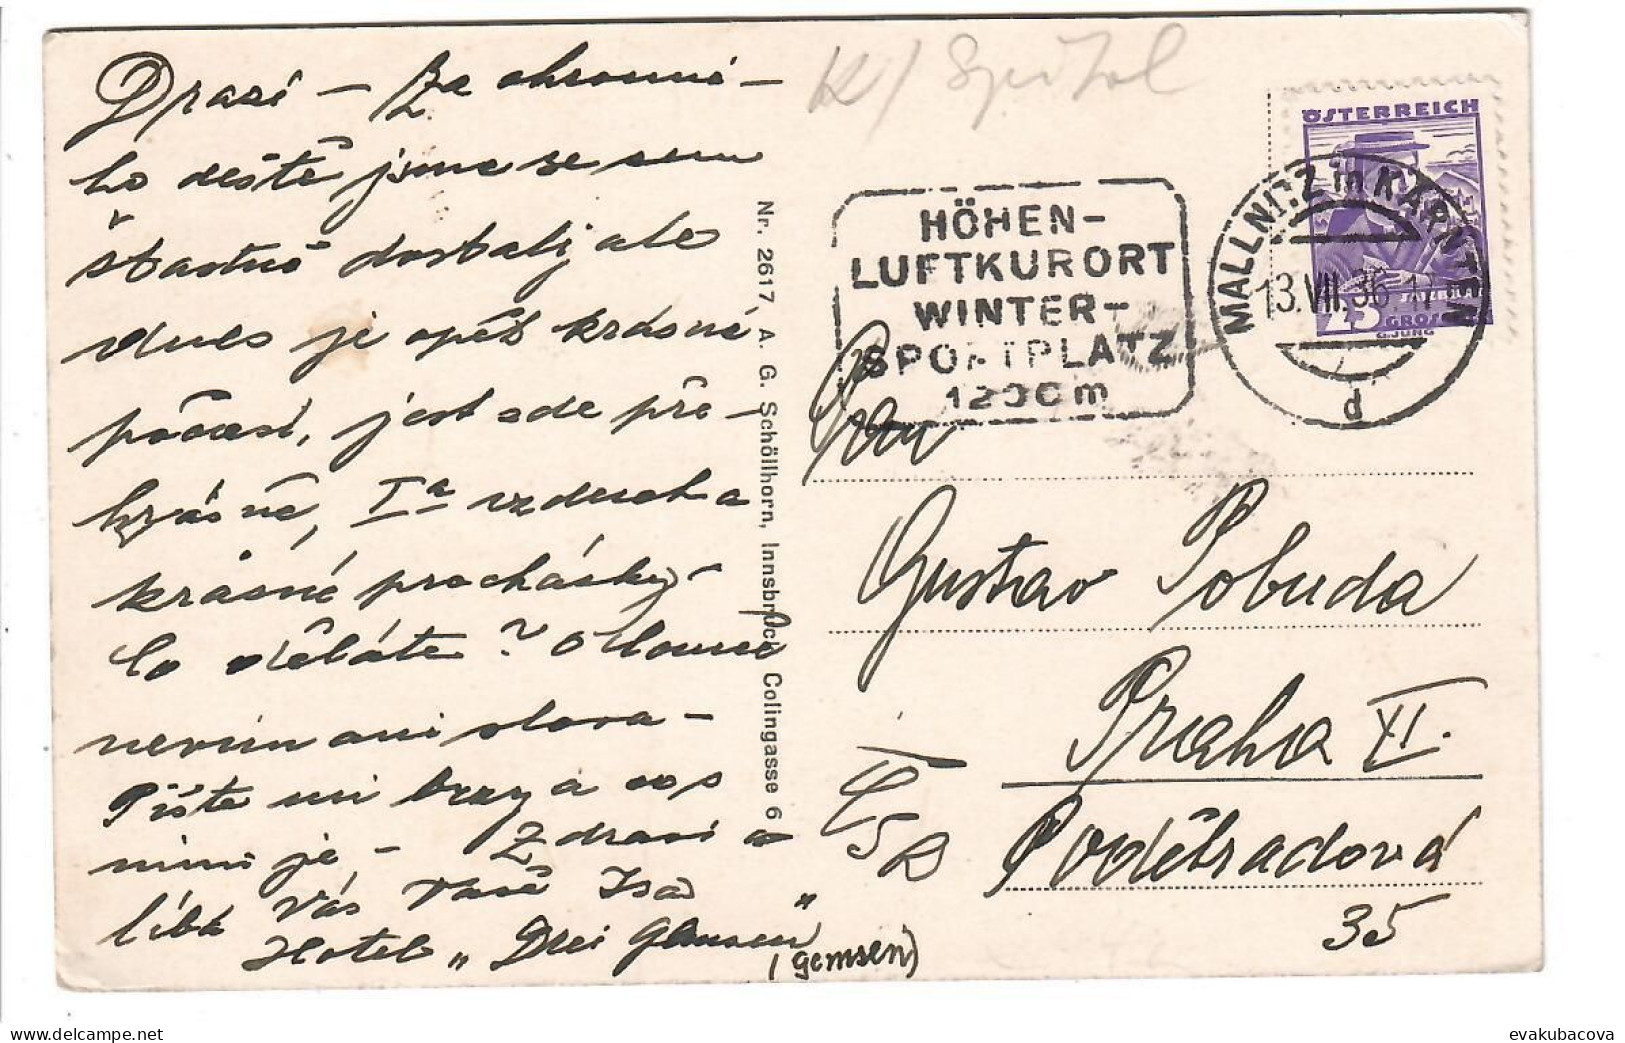 Drazí – Za ohromné-
ho deště jsme se sem
šťastně dostali, ale
dnes je opět krásné
počasí, jest zde pře-
krásně, Iª vzduch a
krásné procházky –
Co děláte? O Slounů
nevím ani slova –
Pište mi brzy a os
mimi je, – Zdraví a
líbá Vás Vaše Isa
Hotel „Drei Gemsen"
(gemsen)
Nr. 2617 A. G. Schöllhorn, Innsbruck Colingasse 6
K/ Spital
HÖHEN-
LUFTKURORT
WINTER-
SPORTPLATZ
1200 m
MALLNITZ in KÄRNTEN
13.VII.36 17
d
ÖSTERREICH
SALZBURG
GROSCHEN
G.JUNG
Pan
Gustav Pobuda
Praha XII.
ČSR
Poděbradova
35
delcampe.net
evakubacova